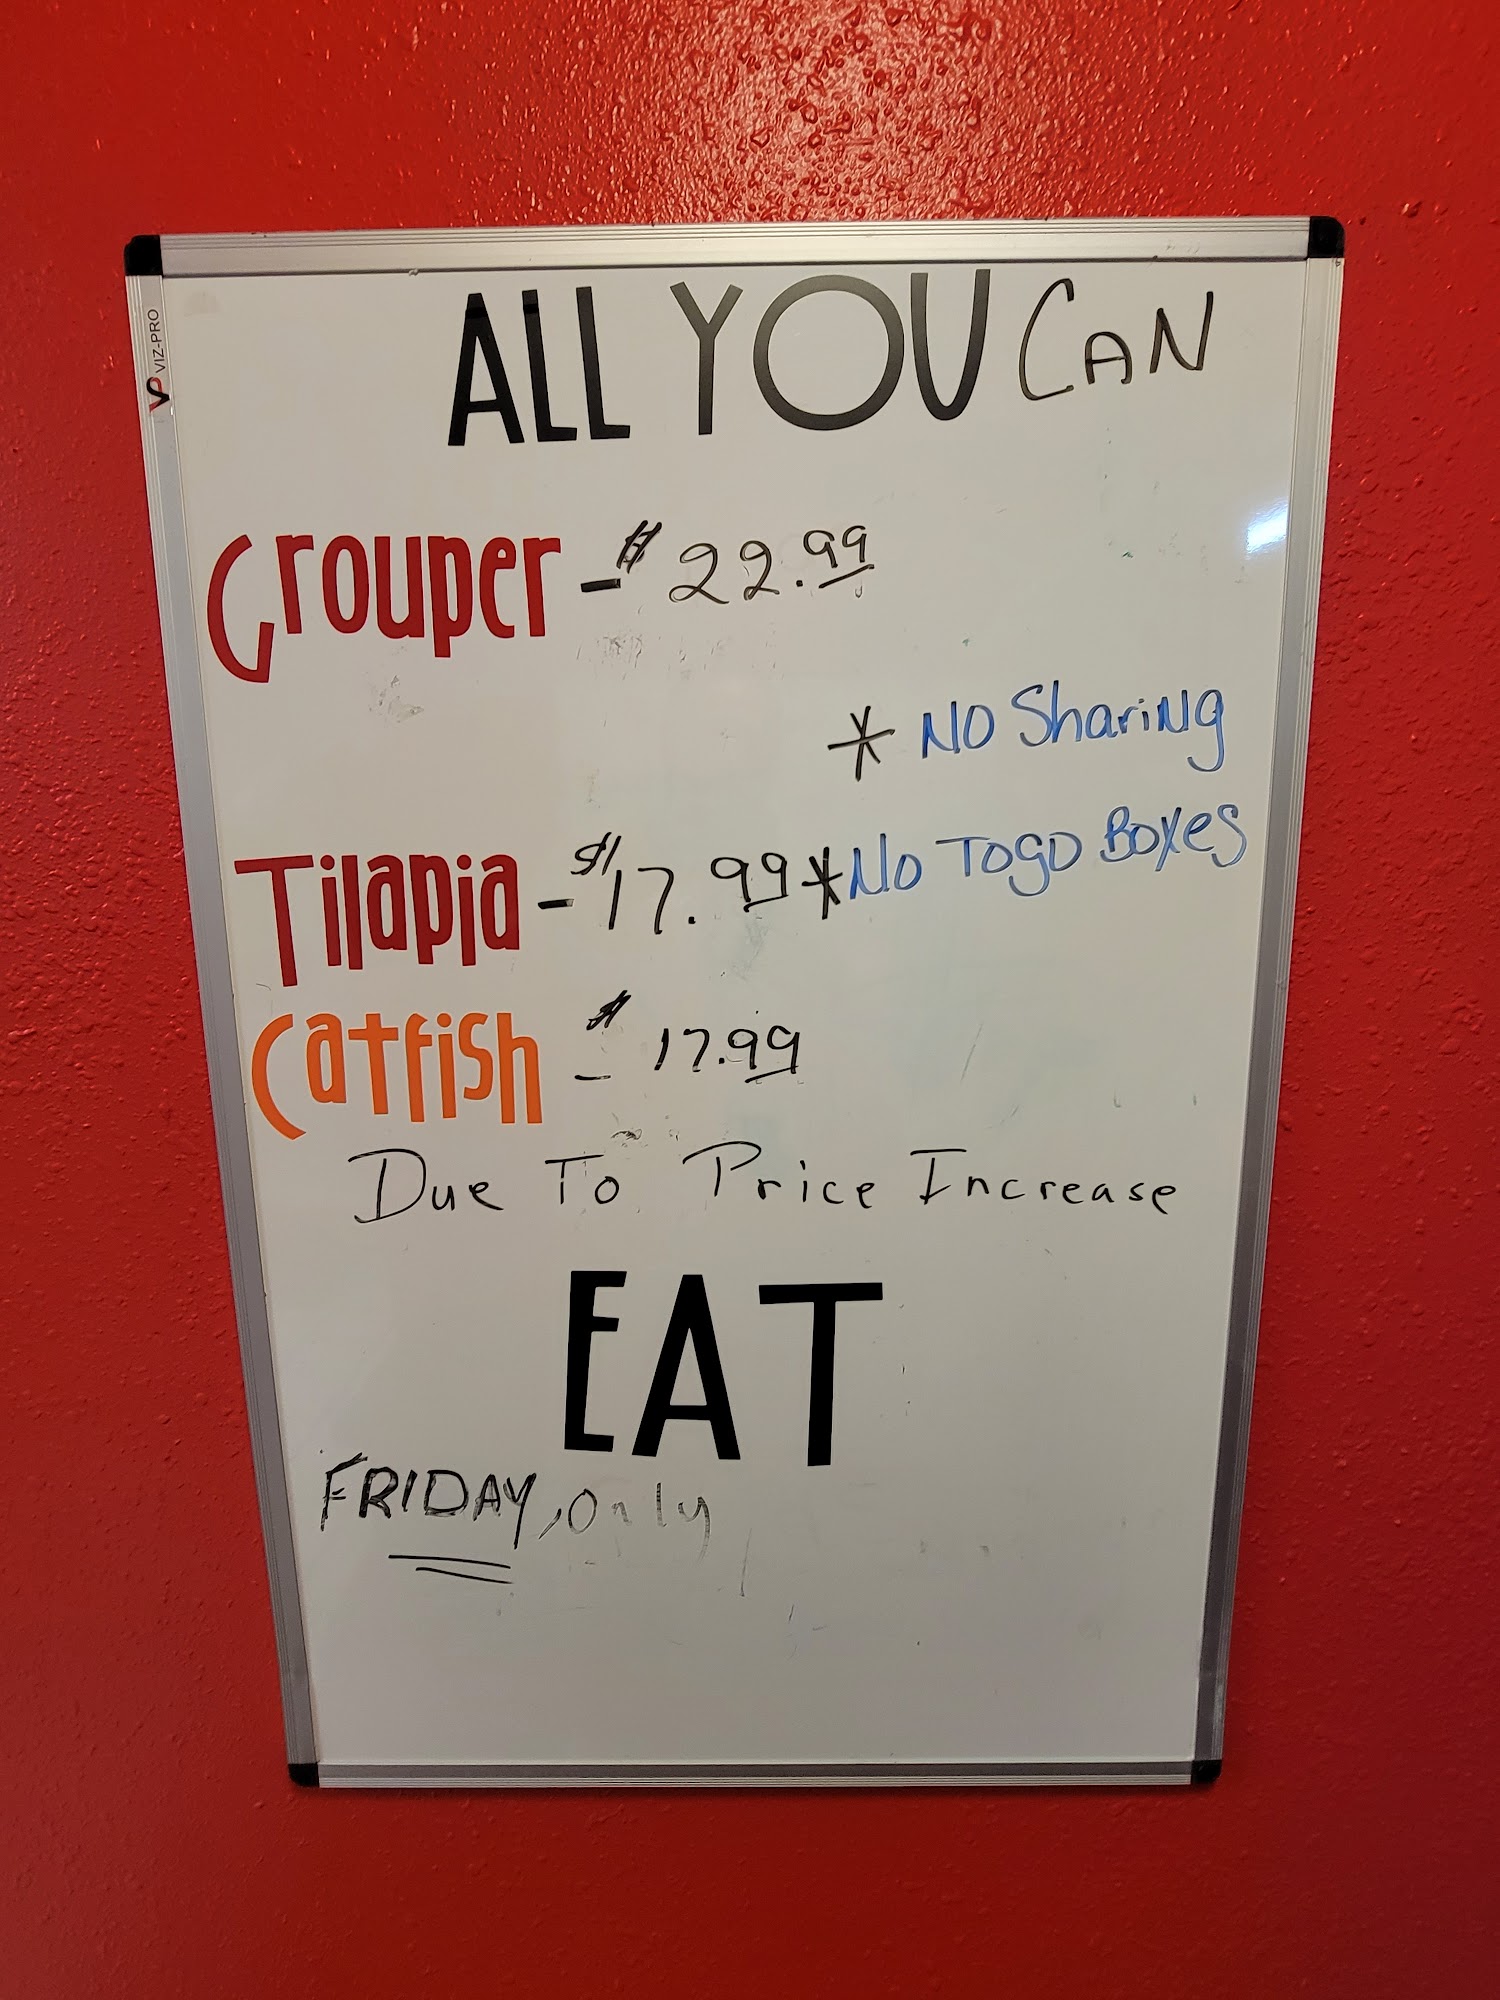 VIZ-PRO
ALL YOU CAN
Grouper - $ 22.99
* NO Sharing
Tilapia - $17.99 * No Togo Boxes
Catfish - $ 17.99
Due To Price Increase
EAT
FRIDAY, Only